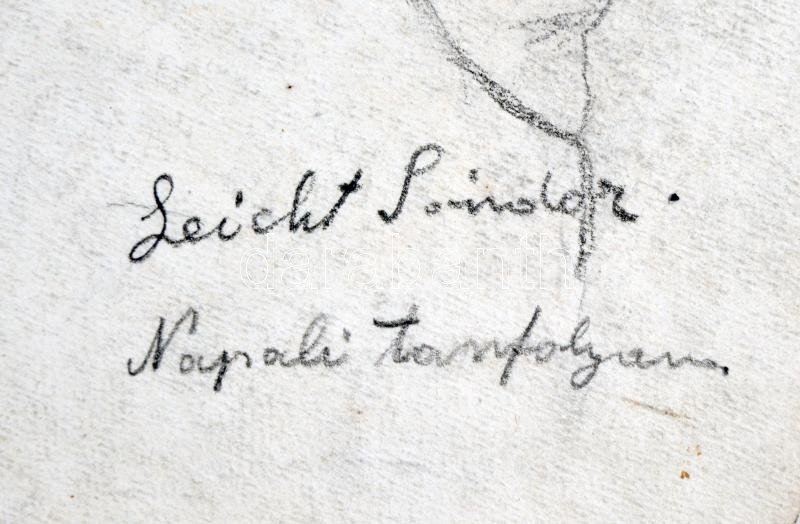 Leicht Sándor.
Napali tanfolyam.